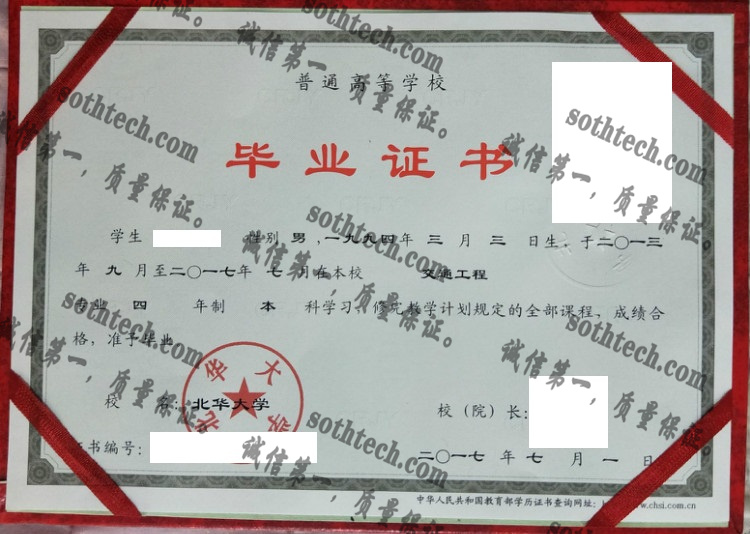 普通高等学校
毕业证书
学生 性别 男，一九九四年 三 月 三 日生，于二〇一三
年 九 月至二〇一七年 七 月在本校 交通工程
专业 四 年制 本 科学习，修完教学计划规定的全部课程，成绩合
格，准予毕业
校 名：北华大学
校（院）长：
证书编号：
二〇一七 年 七 月 一 日
中华人民共和国教育部学历证书查询网址：www.chsi.com.cn
北华大学
sothtech.com
诚信第一，质量保证。
sothtech.com
诚信第一，质量保证。
sothtech.com
诚信第一，质量保证。
sothtech.com
诚信第一，质量保证。
sothtech.com
诚信第一，质量保证。
sothtech.com
诚信第一，质量保证。
sothtech.com
诚信第一，质量保证。
sothtech.com
诚信第一，质量保证。